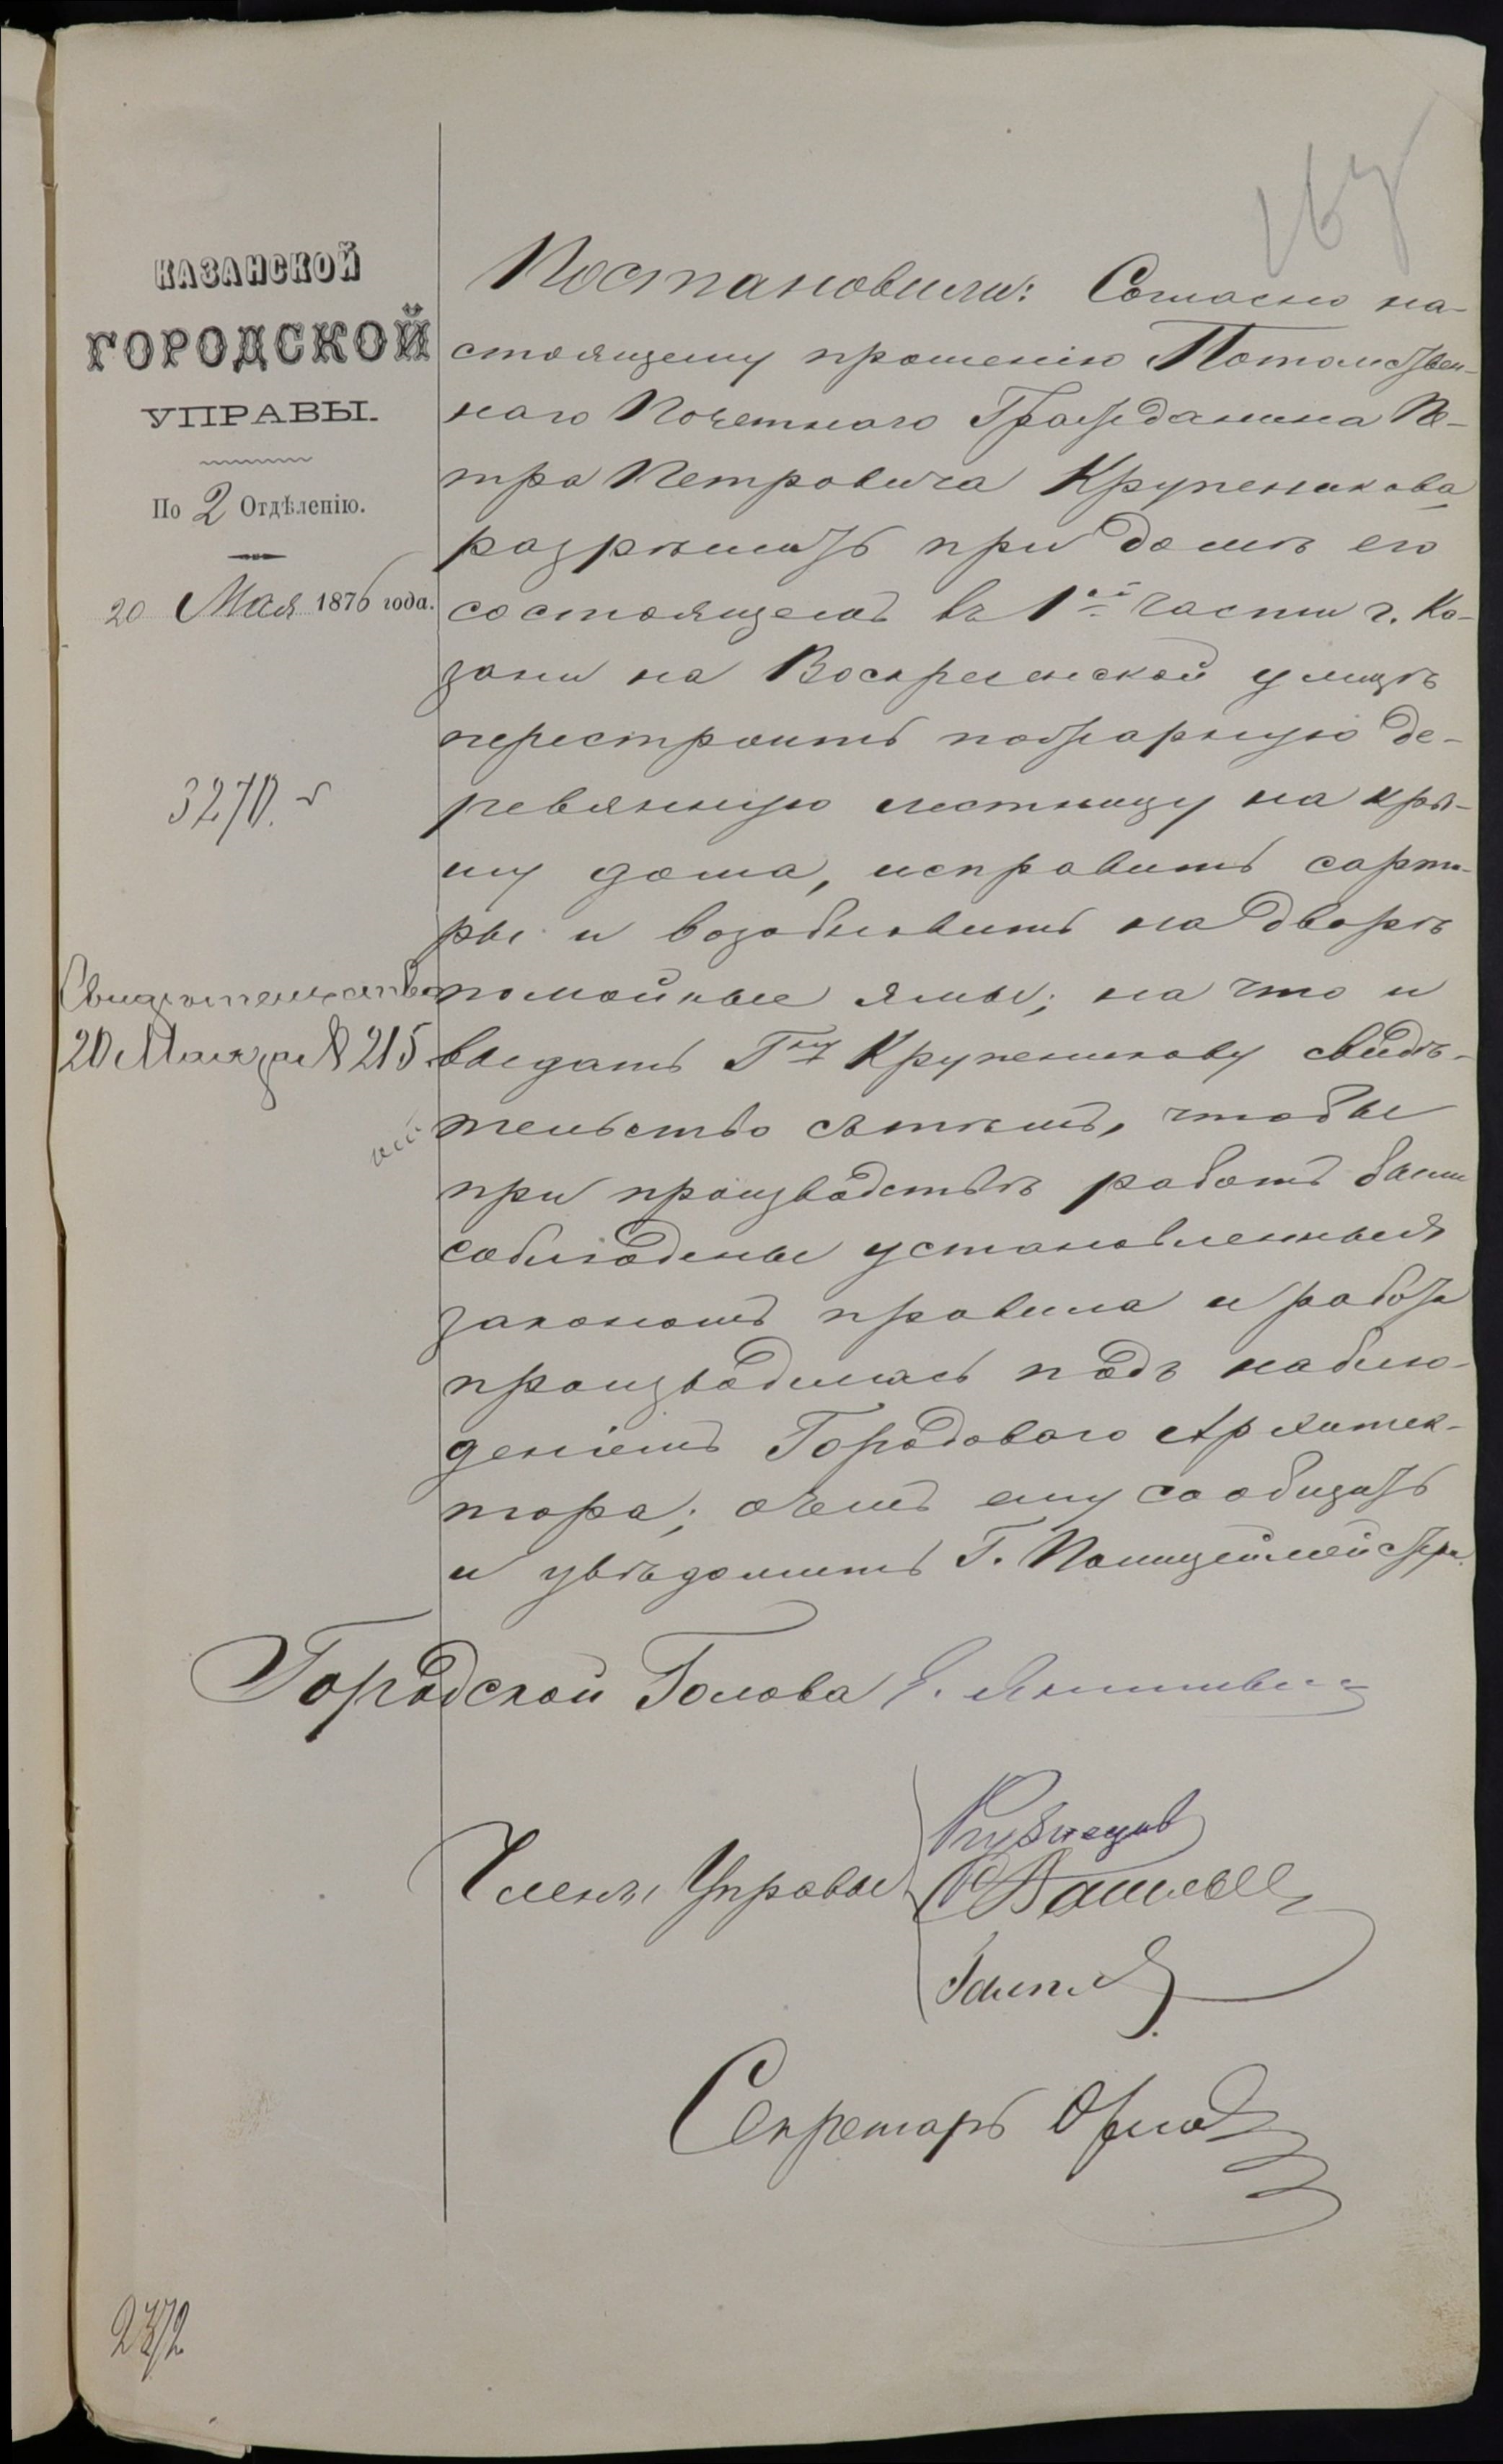 167
КАЗАНСКОЙ
ГОРОДСКОЙ
УПРАВЫ.
По 2 Отдѣленію.
20 Мая 1876 года.
3270.
Свидѣтельство
20 Мая за № 215
Постановили: Согласно на-
стоящему прошенію Потомствен-
наго Почетнаго Гражданина Пе-
тра Петровича Крупеникова
разрѣшить при домѣ его
состоящемъ въ 1ой части г. Ка-
зани на Воскресенской улицѣ
перестроить пожарную де-
ревянную лестницу на кры-
шу дома, исправить сорти-
ры и возобновить на дворѣ
помойные ямы; на что и
выдать Гну Крупеникову свидѣ-
тельство съ тѣмъ, чтобы
при производствѣ работъ были
соблюдены установленныя
закономъ правила и работа
производилась подъ наблю-
деніемъ Городоваго Архитек-
тора; о чемъ ему сообщить
и увѣдомить Г. Полицеймейстера.
Городской Голова Э. Янишевскій
Члены Управы
Кузнецовъ
Секретарь Орловъ
2372